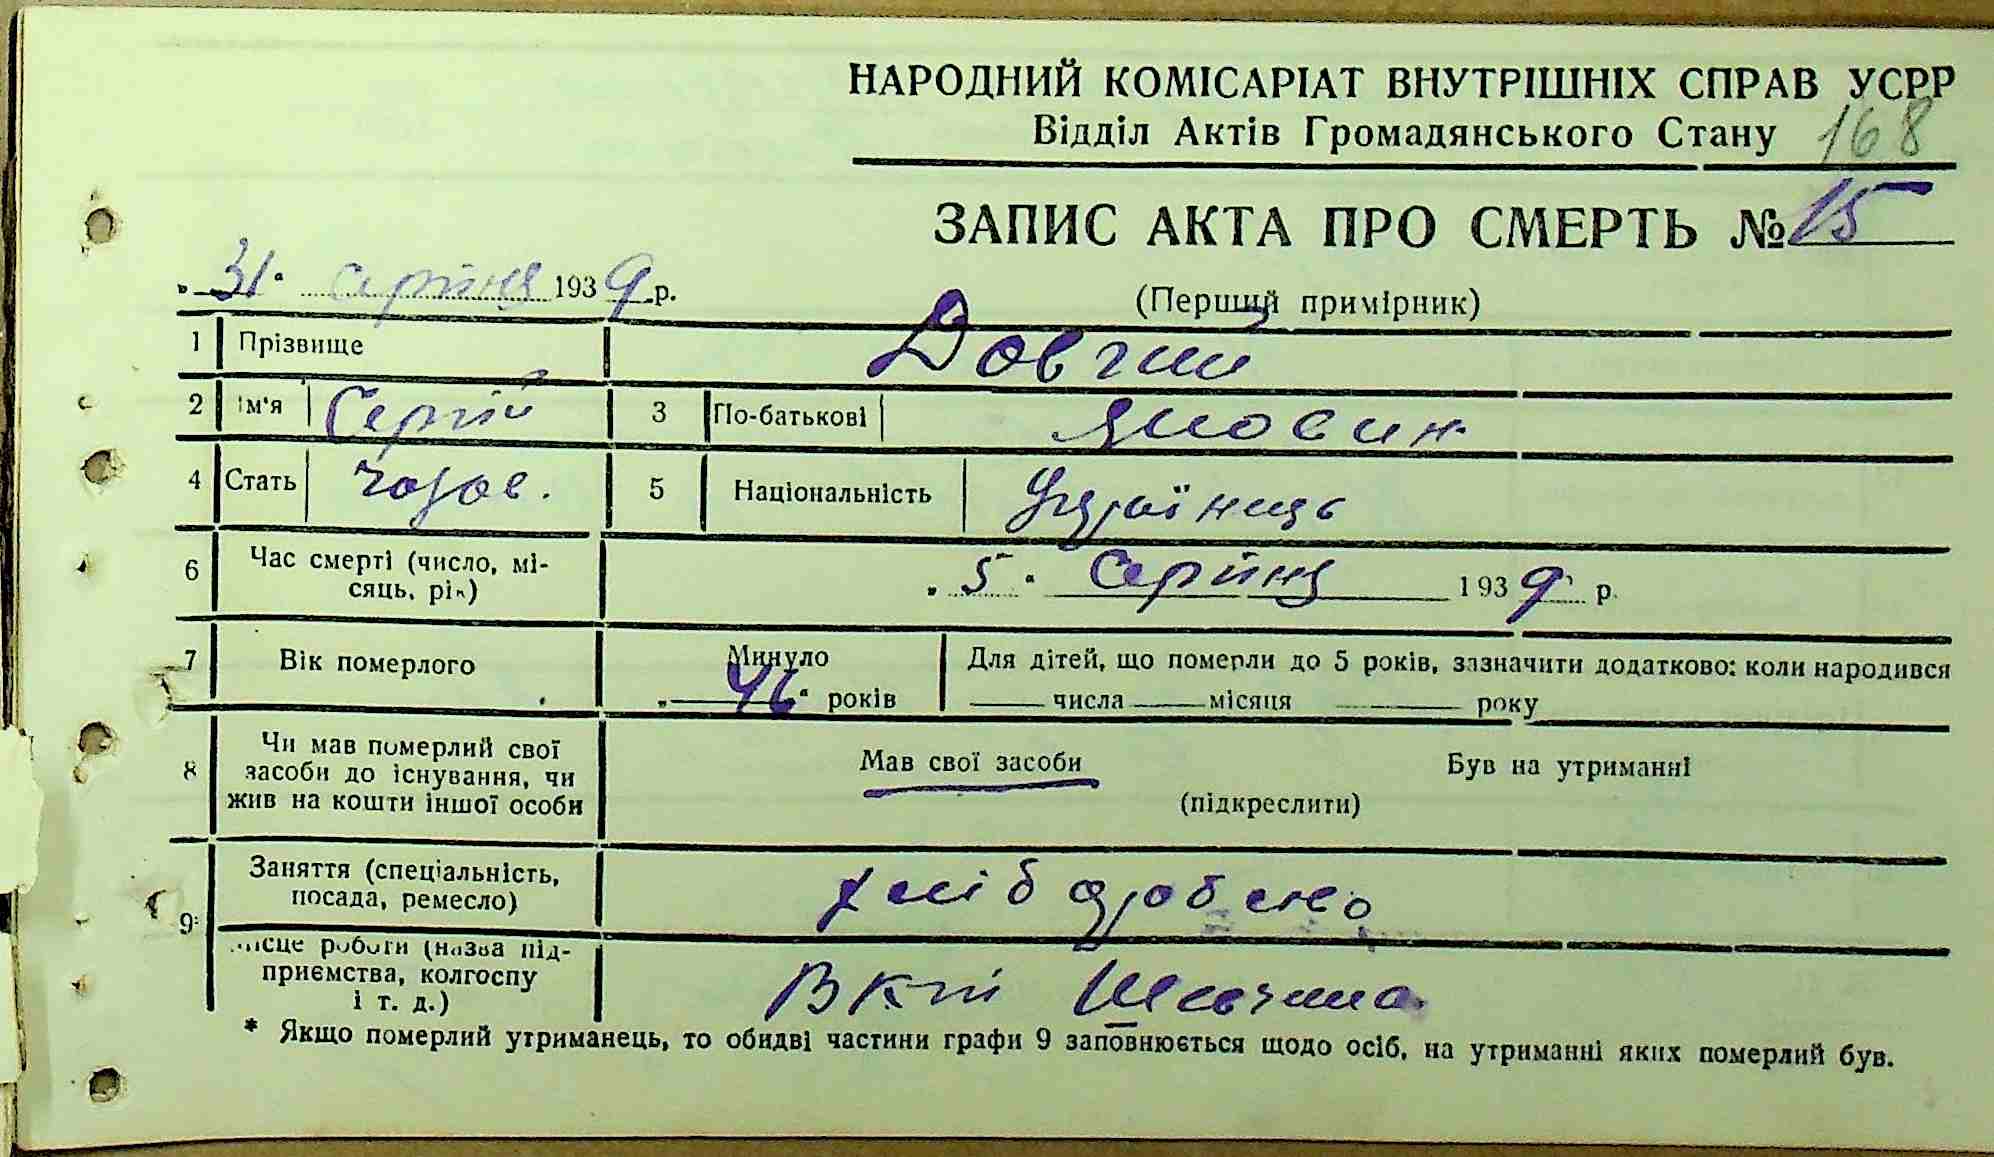 НАРОДНИЙ КОМІСАРІАТ ВНУТРІШНІХ СПРАВ УСРР
Відділ Актів Громадянського Стану 168
ЗАПИС АКТА ПРО СМЕРТЬ № 15
„ 31 “ серпня 1939 р.
(Перший примірник)
1 Прізвище Довгий
2 Ім'я Сергій 3 По-батькові
4 Стать чолов. 5 Національність Українець
6 Час смерті (число, мі-
сяць, рік) „ 5 “ Серпня 1939 р.
7 Вік померлого Минуло
„ 46 “ років
Для дітей, що померли до 5 років, зазначити додатково: коли народився
числа місяця року
8 Чи мав померлий свої
засоби до існування, чи
жив на кошти іншої особи
Мав свої засоби Був на утриманні
(підкреслити)
9* Заняття (спеціальність,
посада, ремесло) хліборобство
Місце роботи (назва під-
приємства, колгоспу
і т. д.) В к-пі Шевченка
* Якщо померлий утриманець, то обидві частини графи 9 заповнюється щодо осіб, на утриманні яких померлий був.